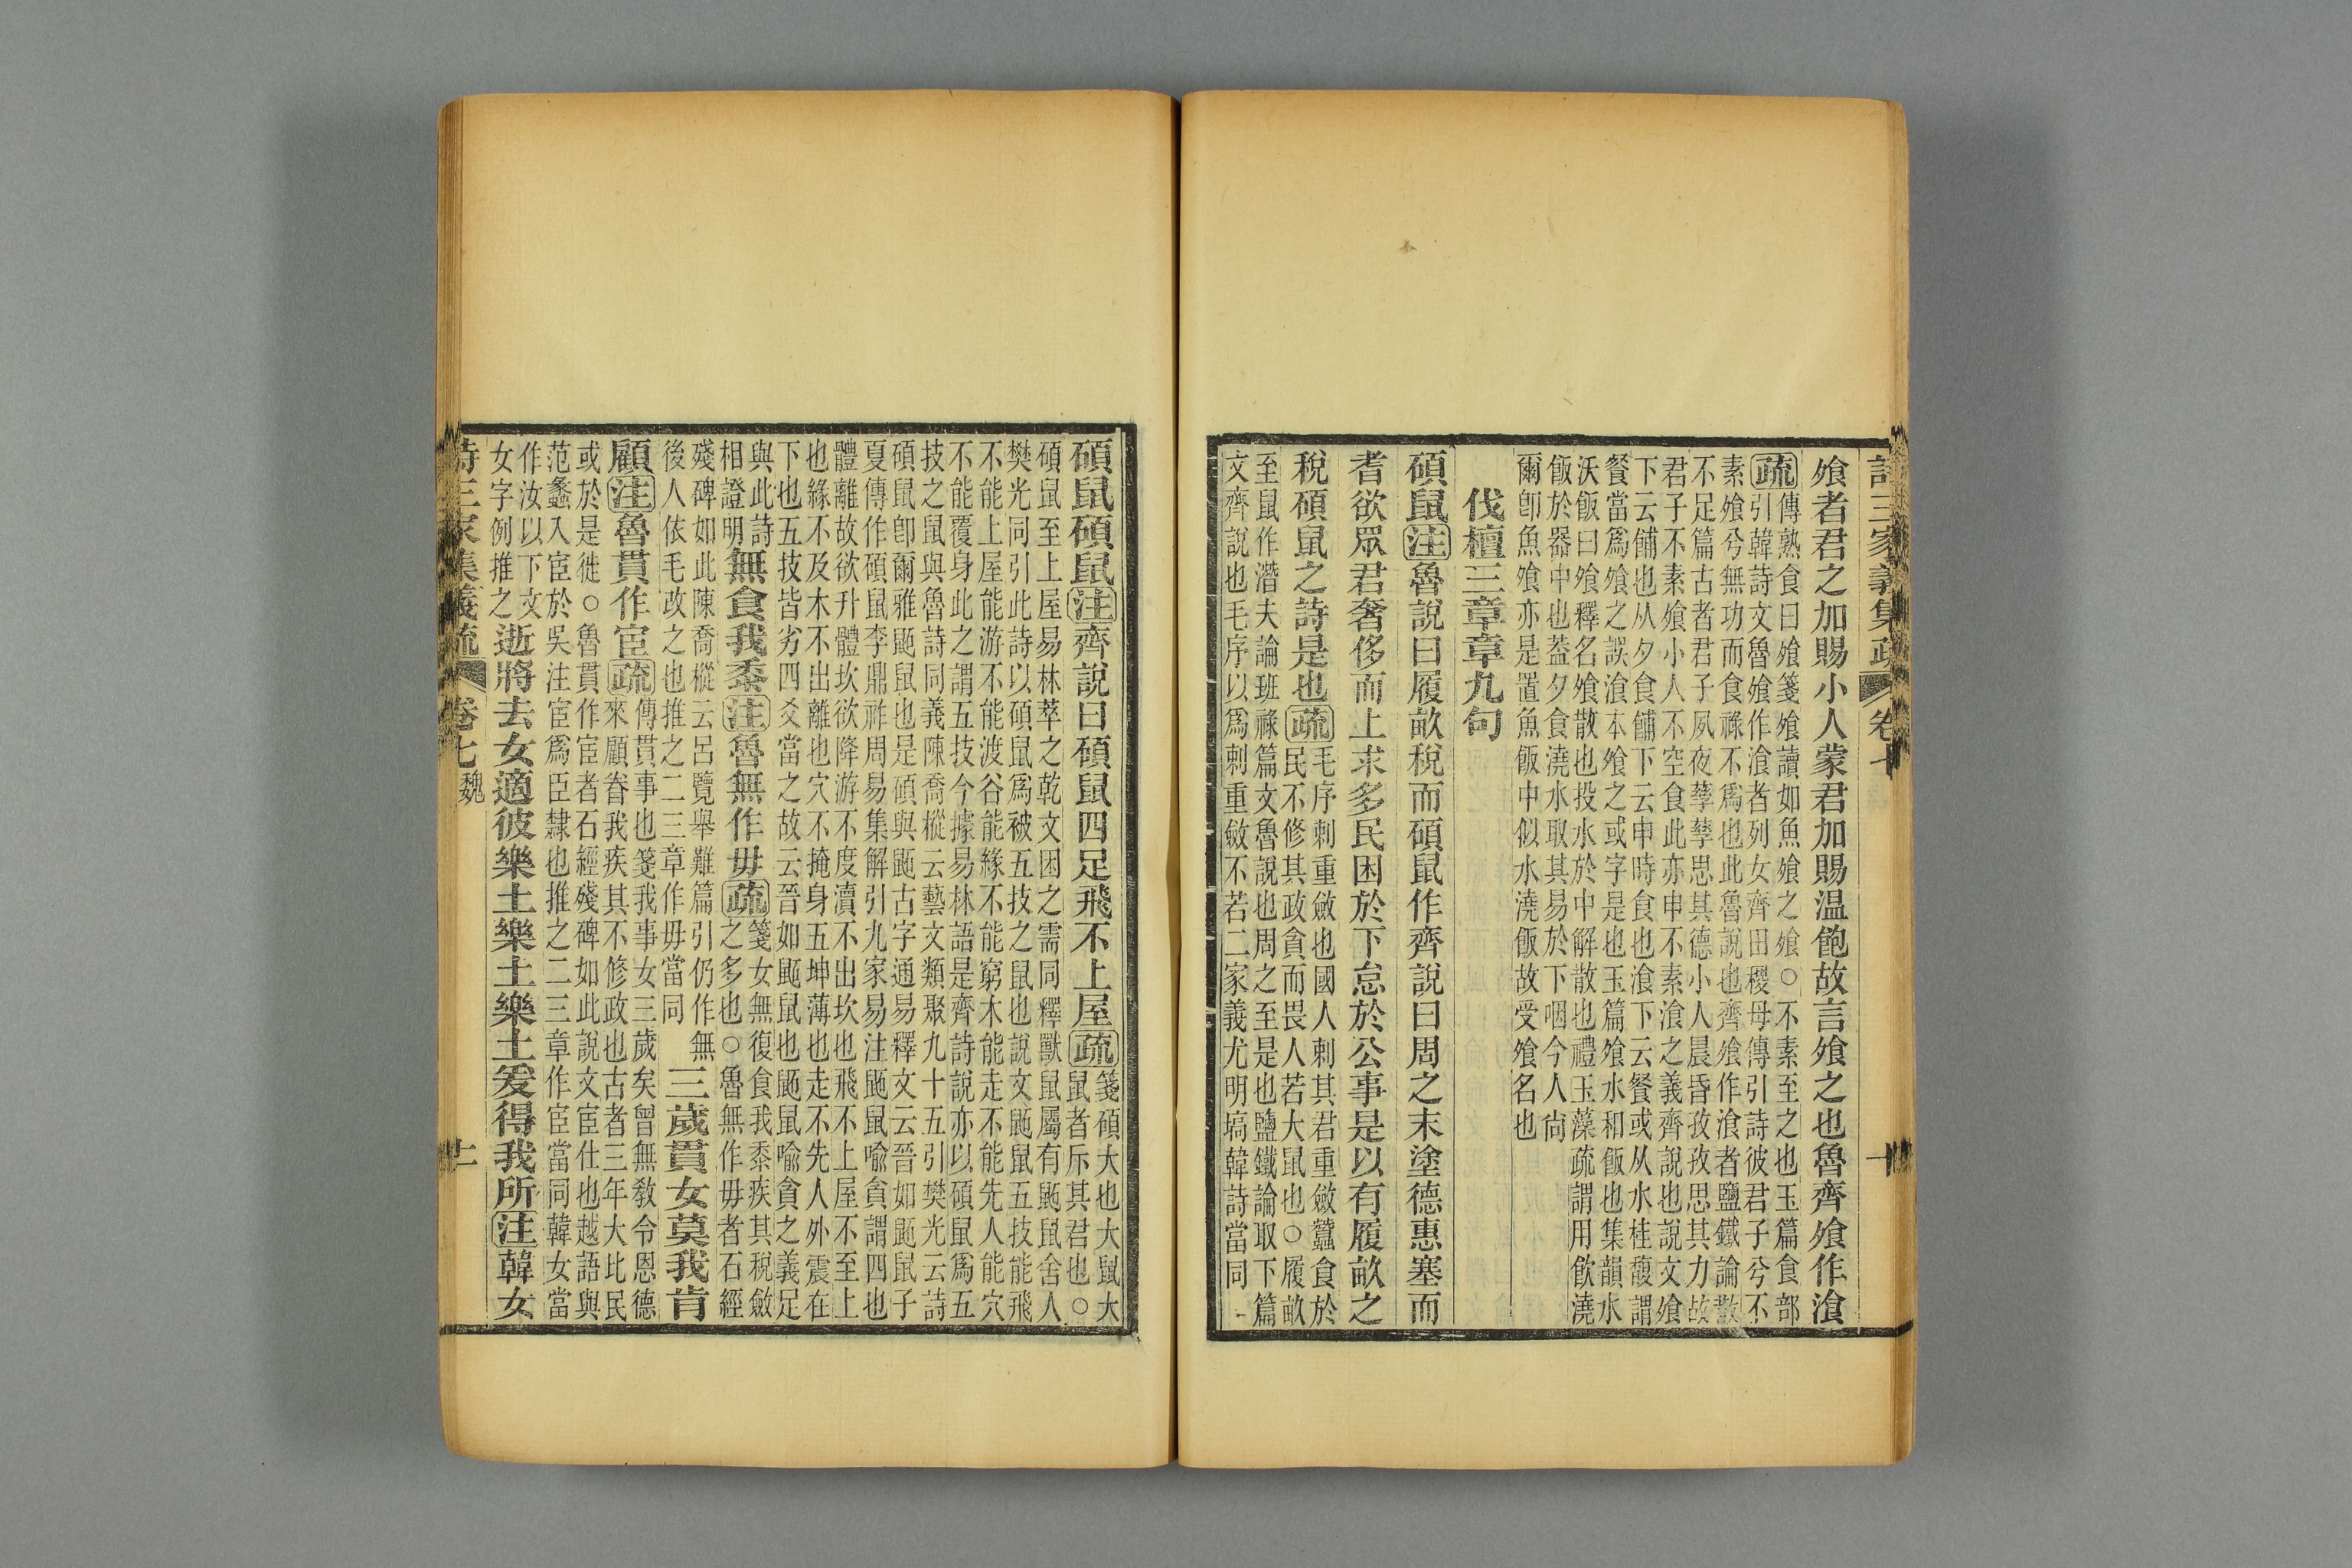 詩三家義集疏 卷七 十
飧者君之加賜小人蒙君加賜温飽故言飧之也魯齊飧作湌
疏傳熟食曰飧箋飧讀如魚飧之飧○不素至之也玉篇食部
引韓詩文魯飧作湌者列女齊田稷母傳引詩彼君子兮不
素飧兮無功而食祿不爲也此魯說也齊飧作湌者鹽鐵論散
不足篇古者君子夙夜孳孳思其德小人晨昏孜孜思其力故
君子不素飧小人不空食此亦申不素湌之義齊說也說文飧
下云餔也从夕食餔下云申時食也湌下云餐或从水桂馥謂
餐當爲飧之誤湌本飧之或字是也玉篇飧水和飯也集韻水
沃飯曰飧釋名飧散也投水於中解散也禮玉藻疏謂用飲澆
飯於器中也葢夕食澆水取其易於下咽今人尙
爾卽魚飧亦是置魚飯中似水澆飯故受飧名也
伐檀三章章九句
碩鼠注魯說曰履畝稅而碩鼠作齊說曰周之末塗德惠塞而
耆欲眾君奢侈而上求多民困於下怠於公事是以有履畝之
稅碩鼠之詩是也疏毛序刺重斂也國人刺其君重斂蠶食於
民不修其政貪而畏人若大鼠也○履畝
至鼠作潛夫論班祿篇文魯說也周之至是也鹽鐵論取下篇
文齊說也毛序以爲刺重斂不若二家義尤明塙韓詩當同
碩鼠碩鼠注齊說曰碩鼠四足飛不上屋疏箋碩大也大鼠大
鼠者斥其君也○
碩鼠至上屋易林萃之乾文困之需同釋獸鼠屬有鼫鼠舍人
樊光同引此詩以碩鼠爲被五技之鼠也說文鼫鼠五技能飛
不能上屋能游不能渡谷能緣不能窮木能走不能先人能穴
不能覆身此之謂五技今據易林語是齊詩說亦以碩鼠爲五
技之鼠與魯詩同義陳喬樅云藝文類聚九十五引樊光云詩
碩鼠卽爾雅鼫鼠也是碩與鼫古字通易釋文云晉如鼫鼠子
夏傳作碩鼠李鼎祚周易集解引九家易注鼫鼠喻貪謂四也
體離故欲升體坎欲降游不度瀆不出坎也飛不上屋不至上
也緣不及木不出離也穴不掩身五坤薄也走不先人外震在
下也五技皆劣四爻當之故云晉如鼫鼠也鼫鼠喻貪之義足
與此詩
相證明無食我黍注魯無作毋疏箋女無復食我黍疾其稅斂
之多也○魯無作毋者石經
殘碑如此陳喬樅云呂覽舉難篇引仍作無
後人依毛改之也推之二三章作毋當同三歲貫女莫我肯
顧注魯貫作宦疏傳貫事也箋我事女三歲矣曾無敎令恩德
來顧眷我疾其不修政也古者三年大比民
或於是徙○魯貫作宦者石經殘碑如此說文宦仕也越語與
范蠡入宦於吳注宦爲臣隸也推之二三章作宦當同韓女當
作汝以下文
女字例推之逝將去女適彼樂土樂土樂土爰得我所注韓女
詩三家義集疏 卷七 魏 十一